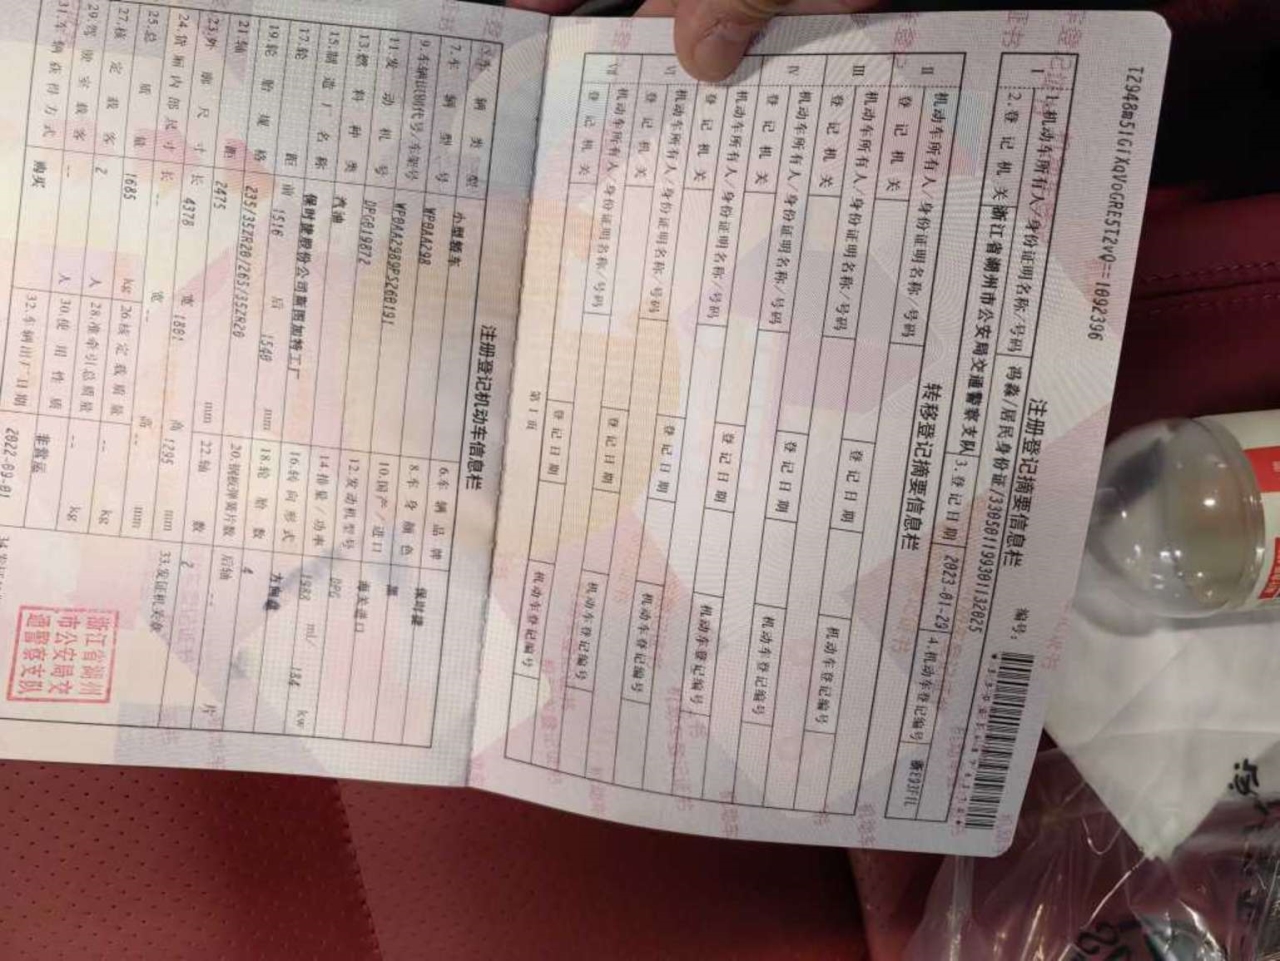 TZ948m51GiXqVoGRE5T2vQ==1092396
注册登记摘要信息栏
编号:
I
1.机动车所有人/身份证明名称/号码 冯淼/居民身份证/330501199301132025
2.登记机关 浙江省湖州市公安局交通警察支队 3.登记日期 2023-01-29 4.机动车登记编号
转移登记摘要信息栏
II 机动车所有人/身份证明名称/号码
登记机关 登记日期 机动车登记编号
III 机动车所有人/身份证明名称/号码
登记机关 登记日期 机动车登记编号
IV 机动车所有人/身份证明名称/号码
登记机关 登记日期 机动车登记编号
机动车所有人/身份证明名称/号码
登记机关 登记日期 机动车登记编号
VI 机动车所有人/身份证明名称/号码
登记机关 登记日期 机动车登记编号
VII 机动车所有人/身份证明名称/号码
登记机关 登记日期 机动车登记编号
第1页
注册登记机动车信息栏
车辆类型 小型轿车 6.车辆品牌 保时捷
7.车辆型号 WP0AA298 8.车身颜色 黑
9.车辆识别代号/车架号 WP0AA2989PS260191 10.国产/进口 海关进口
11.发动机号 DPG019872 12.发动机型号 DPG
13.燃料种类 汽油 14.排量/功率 1988 mL 184 kw
15.制造厂名称 保时捷股份公司斯图加特工厂 16.转向形式 方向盘
17.轮距 前 1516 后 1540 mm 18.轮胎数 4
19.轮胎规格 235/35ZR20/265/35ZR20 20.钢板弹簧片数 后轴 -- 片
21.轴距 2475 mm 22.轴数 2
23.外廓尺寸 长 4378 宽 1801 高 1295 mm 33.发证机关章
24.货厢内部尺寸 长 -- 宽 -- 高 -- mm
25.总质量 1685 kg 26.核定载质量 -- kg
27.核定载客 2 人 28.准牵引总质量 -- kg
29.驾驶室载客 -- 人 30.使用性质 非营运
31.车辆获得方式 购买 32.车辆出厂日期 2022-09-01
浙江省湖州
市公安局交
通警察支队